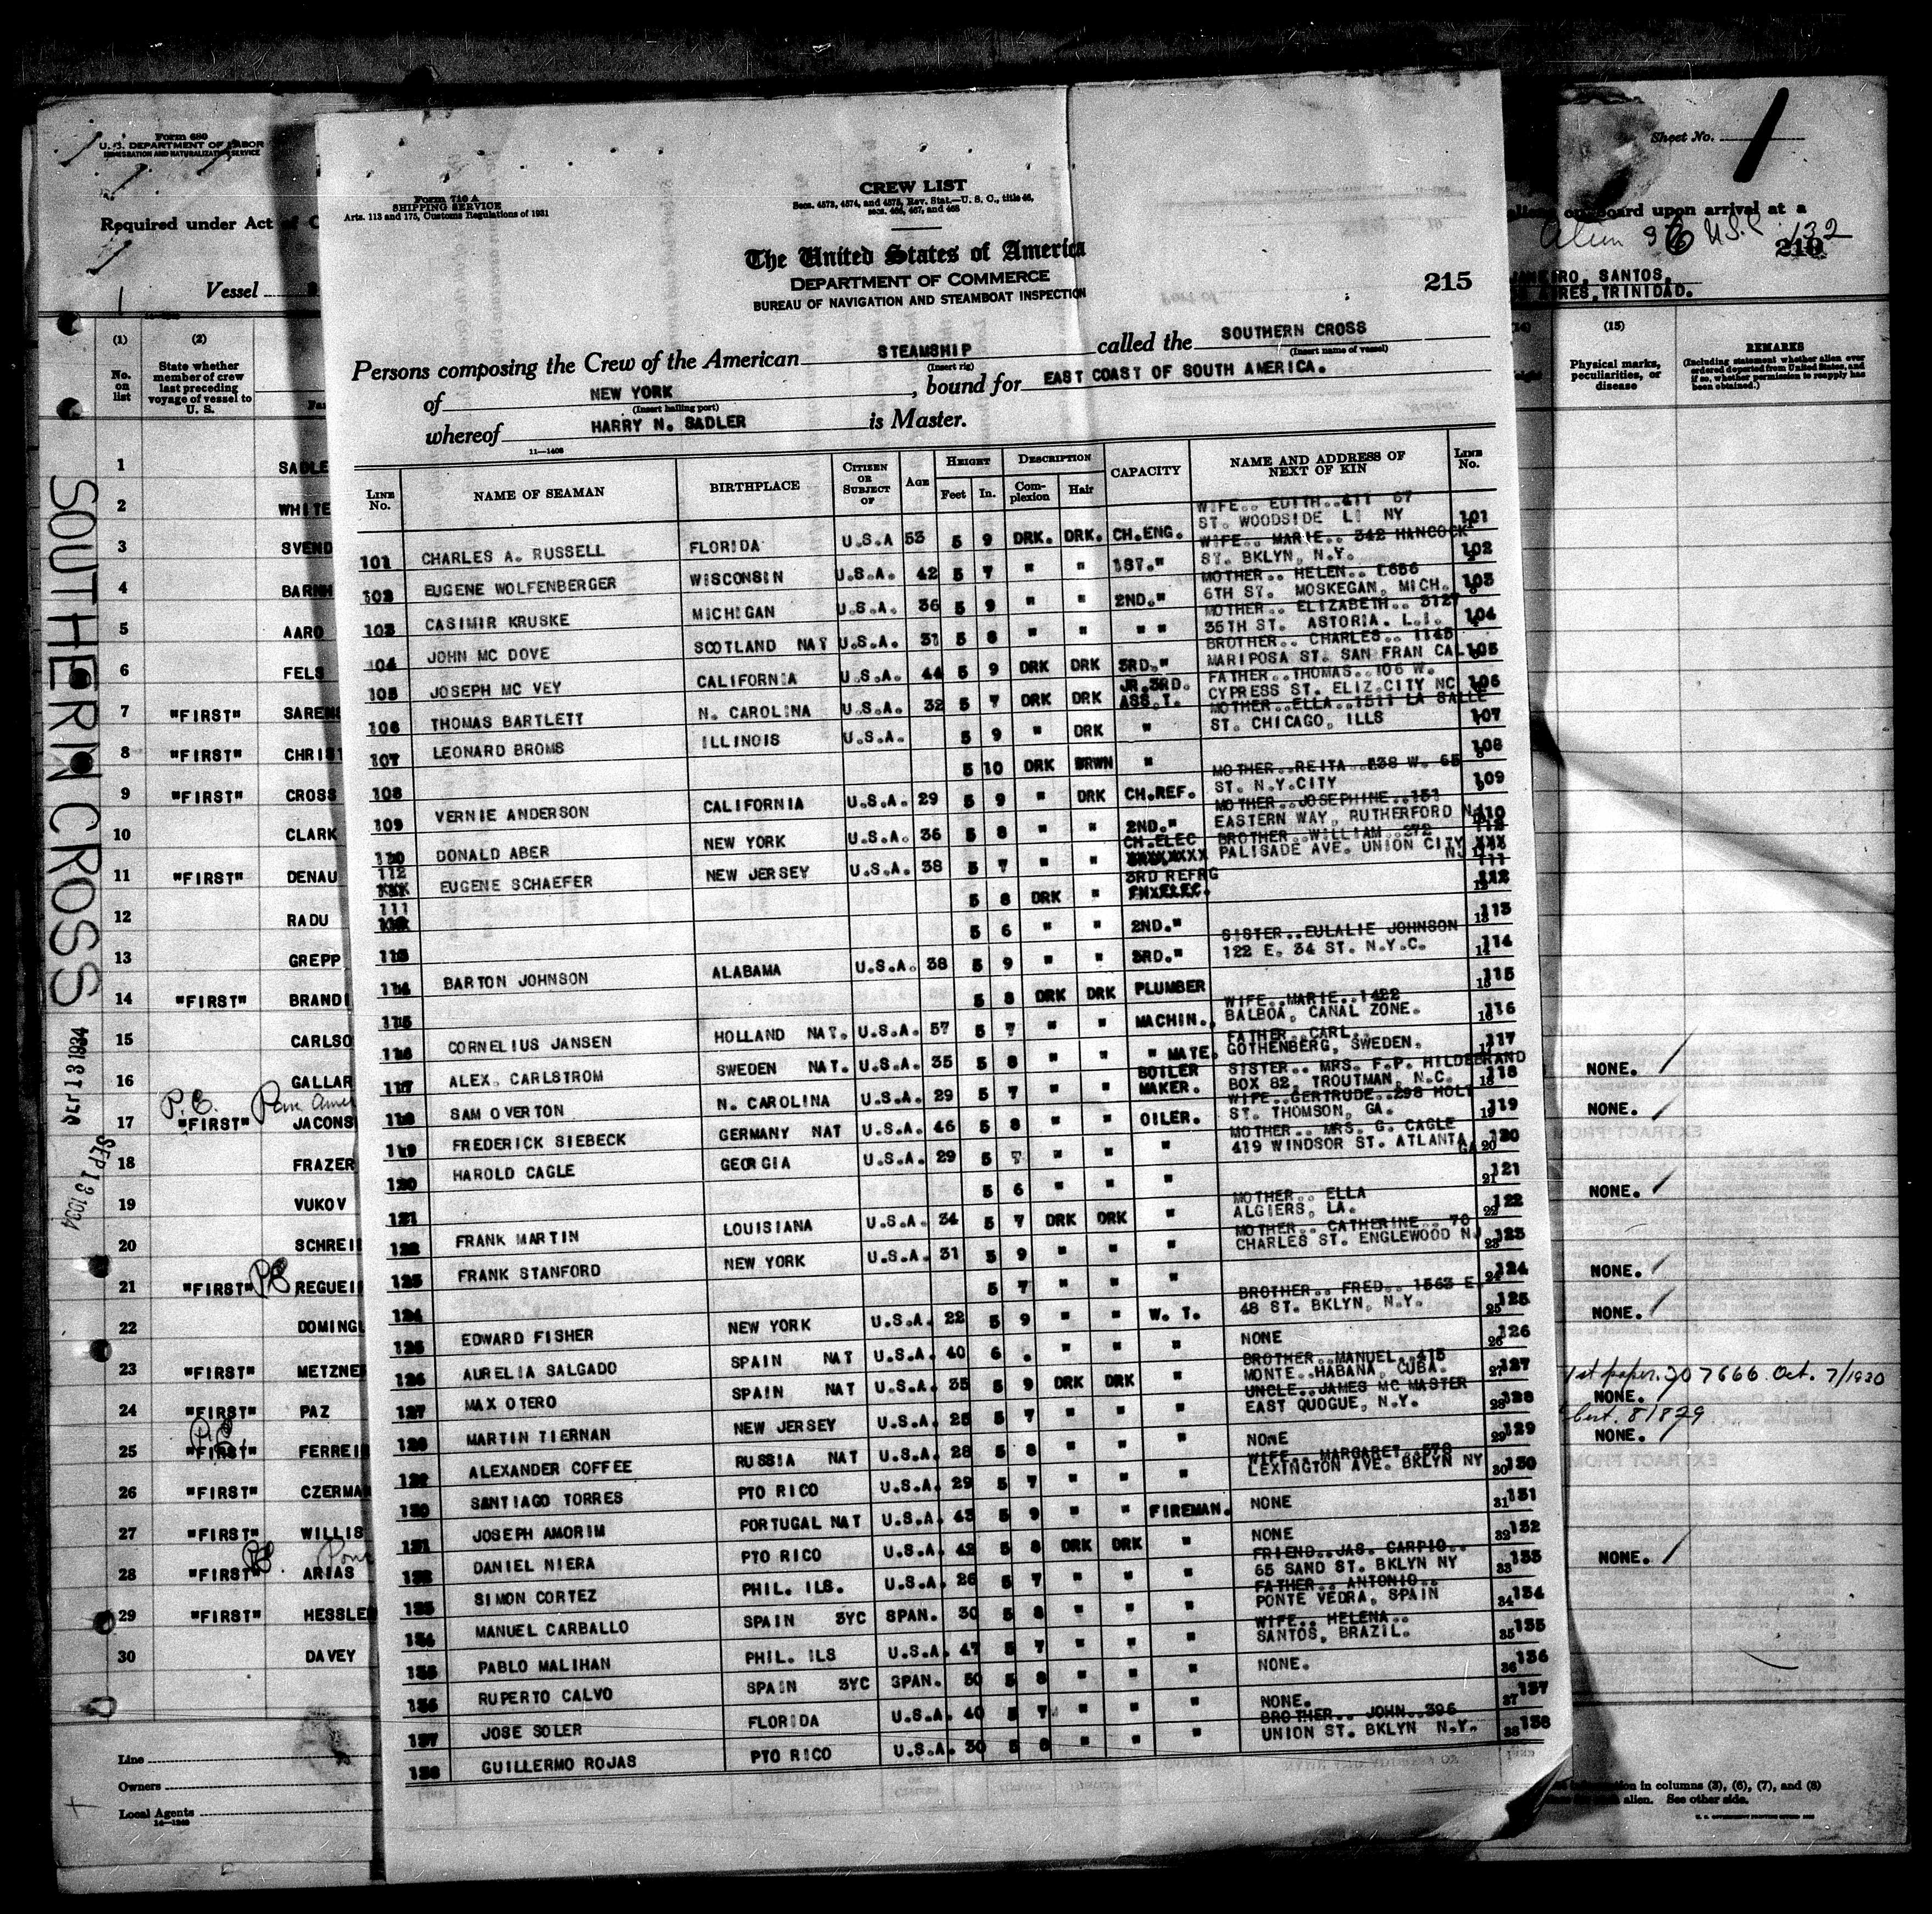 Form 680
U. S. DEPARTMENT OF LABOR
IMMIGRATION AND NATURALIZATION SERVICE
Required under Act of C
Vessel
(1)
No. on list
(2)
State whether member of crew last preceding voyage of vessel to U. S.
1 SADLE
2 WHITE
3 SVEND
4 BARNH
5 AARO
6 FELS
7 "FIRST" SARENS
8 "FIRST" CHRIST
9 "FIRST" CROSS
10 CLARK
11 "FIRST" DENAU
12 RADU
13 GREPP
14 "FIRST" BRANDI
15 CARLSO
16 GALLAR
P.E.
17 "FIRST" JACONS
18 FRAZER
19 VUKOV
20 SCHREI
21 "FIRST" REGUEI
22 DOMING
23 "FIRST" METZNE
24 "FIRST" PAZ
25 "FIRST" FERREI
26 "FIRST" CZERMA
27 "FIRST" WILLIS
28 "FIRST" ARIAS
29 "FIRST" HESSLE
30 DAVEY
Line
Owners
Local Agents
14—1240
SOUTHERN CROSS
SEP 13 1934
SEP 13 1934
Form 710 A
SHIPPING SERVICE
Arts. 113 and 175, Customs Regulations of 1931
CREW LIST
Secs. 4573, 4574, and 4575, Rev. Stat.—U. S. C., title 46,
secs. 464, 467, and 468
The United States of America
DEPARTMENT OF COMMERCE
BUREAU OF NAVIGATION AND STEAMBOAT INSPECTION
215
Persons composing the Crew of the American STEAMSHIP called the SOUTHERN CROSS
(Insert rig) (Insert name of vessel)
of NEW YORK, bound for EAST COAST OF SOUTH AMERICA.
(Insert hailing port)
whereof HARRY N. SADLER is Master.
11—1406
LINE No. NAME OF SEAMAN BIRTHPLACE CITIZEN OR SUBJECT OF AGE HEIGHT Feet In. DESCRIPTION Complexion Hair CAPACITY NAME AND ADDRESS OF NEXT OF KIN LINE No.
101 CHARLES A. RUSSELL FLORIDA U.S.A 53 5 9 DRK. DRK. CH.ENG. WIFE.. EDITH..411 67 ST. WOODSIDE LI NY 101
102 EUGENE WOLFENBERGER WISCONSIN U.S.A. 42 5 7 " " 1ST." WIFE.. MARIE.. 342 HANCOCK ST. BKLYN, N.Y. 102
103 CASIMIR KRUSKE MICHIGAN U.S.A. 36 5 9 " " 2ND." MOTHER.. HELEN.. 6TH ST. MOSKEGAN, MICH. 103
104 JOHN MC DOVE SCOTLAND NAT U.S.A. 31 5 8 " " " " MOTHER.. ELIZABETH.. 3127 35TH ST. ASTORIA. L.I. 104
105 JOSEPH MC VEY CALIFORNIA U.S.A. 44 5 9 DRK DRK 3RD." BROTHER.. CHARLES.. 1145 MARIPOSA ST. SAN FRAN CAL 105
106 THOMAS BARTLETT N. CAROLINA U.S.A. 32 5 7 DRK DRK JR.3RD. ASS.T. FATHER..THOMAS..106 W. CYPRESS ST. ELIZ.CITY NC 106
107 LEONARD BROMS ILLINOIS U.S.A. 5 9 " DRK " MOTHER..ELLA..1511 LA SALLE ST. CHICAGO, ILLS 107
108 5 10 DRK BRWN " 108
109 VERNIE ANDERSON CALIFORNIA U.S.A. 29 5 9 " DRK CH.REF. MOTHER..REITA 38 W. 65 ST. N.Y.CITY 109
110 DONALD ABER NEW YORK U.S.A. 36 5 8 " " 2ND." MOTHER..JOSEPHINE..151 EASTERN WAY, RUTHERFORD NJ 110
112 EUGENE SCHAEFER NEW JERSEY U.S.A. 38 5 7 " " CH.ELEC BROTHER..WILLIAM..272 PALISADE AVE. UNION CITY NJ 112
111 5 8 DRK " 3RD REFRG 111
113 5 6 " " 2ND." 113
114 BARTON JOHNSON ALABAMA U.S.A. 38 5 9 " " 3RD." SISTER..EULALIE JOHNSON 122 E. 34 ST. N.Y.C. 114
115 5 8 DRK DRK PLUMBER 115
116 CORNELIUS JANSEN HOLLAND NAT. U.S.A. 57 5 7 " " MACHIN. WIFE..MARIE..1422 BALBOA, CANAL ZONE. 116
117 ALEX. CARLSTROM SWEDEN NAT. U.S.A. 35 5 8 " " " MATE. FATHER..CARL.. GOTHENBERG, SWEDEN. 117
118 SAM OVERTON N. CAROLINA U.S.A. 29 5 7 " " BOILER MAKER. SISTER.. MRS. F.P. HILDEBRAND BOX 82, TROUTMAN, N.C. 118
119 FREDERICK SIEBECK GERMANY NAT U.S.A. 46 5 8 " " OILER. WIFE..GERTRUDE..298 HOLT ST. THOMSON, GA. 119
120 HAROLD CAGLE GEORGIA U.S.A. 29 5 7 " " " MOTHER.. MRS. G. CAGLE 419 WINDSOR ST. ATLANTA GA 120
121 5 6 " " " 121
122 FRANK MARTIN LOUISIANA U.S.A. 34 5 7 DRK DRK " MOTHER.. ELLA ALGIERS, LA. 122
123 FRANK STANFORD NEW YORK U.S.A. 31 5 9 " " " MOTHER.. CATHERINE.. 70 CHARLES ST. ENGLEWOOD NJ 123
124 5 7 " " " 124
125 EDWARD FISHER NEW YORK U.S.A. 22 5 9 " " W. T. BROTHER.. FRED.. 1563 E. 48 ST. BKLYN, N.Y. 125
126 AURELIA SALGADO SPAIN NAT U.S.A. 40 6 . NONE 126
127 MAX OTERO SPAIN NAT U.S.A. 35 5 9 DRK DRK " BROTHER..MANUEL..415 MONTE..HABANA, CUBA. 127
128 MARTIN TIERNAN NEW JERSEY U.S.A. 25 5 7 " " " UNCLE..JAMES MC MASTER EAST QUOGUE, N.Y. 128
129 ALEXANDER COFFEE RUSSIA NAT U.S.A. 28 5 8 " " " NONE 129
130 SANTIAGO TORRES PTO RICO U.S.A. 29 5 7 " " " WIFE.. MARGARET..578 LEXINGTON AVE. BKLYN NY 130
131 JOSEPH AMORIM PORTUGAL NAT U.S.A. 43 5 9 " " FIREMAN. NONE 131
132 DANIEL NIERA PTO RICO U.S.A. 42 5 8 DRK DRK " NONE 132
133 SIMON CORTEZ PHIL. ILS. U.S.A. 26 5 7 " " " FRIEND..JAS. CARPIO.. 65 SAND ST. BKLYN NY 133
134 MANUEL CARBALLO SPAIN 3YC SPAN. 30 5 8 " " " FATHER.. ANTONIO.. PONTE VEDRA, SPAIN 134
135 PABLO MALIHAN PHIL. ILS U.S.A. 47 5 7 " " " WIFE.. HELENA.. SANTOS, BRAZIL. 135
136 RUPERTO CALVO SPAIN 3YC SPAN. 50 5 8 " " " NONE. 136
137 JOSE SOLER FLORIDA U.S.A. 40 5 7 " " " NONE. 137
138 GUILLERMO ROJAS PTO RICO U.S.A. 30 5 8 " " " BROTHER.. JOHN..396 UNION ST. BKLYN N.Y. 138
Sheet No. 1
aliens onboard upon arrival at a
210
JANEIRO, SANTOS,
AIRES, TRINIDAD.
(14)
(15)
Physical marks, peculiarities, or disease
REMARKS
(Including statement whether alien ever ordered deported from United States, and if so, whether permission to reapply has been obtained.)
NONE.
NONE.
NONE.
NONE.
NONE.
1st paper. 207666 Oct. 7/1930
NONE.
Cert. 81879
NONE.
NONE.
information in columns (3), (6), (7), and (8)
alien. See other side.